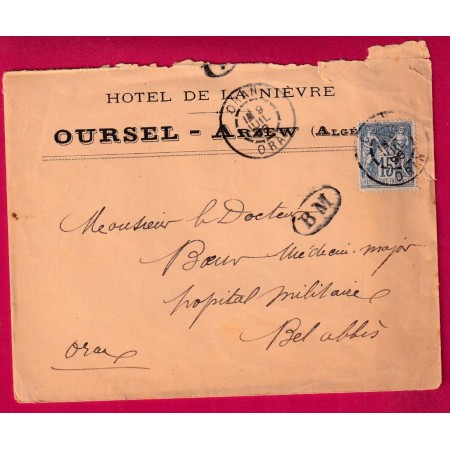 HOTEL DE LA NIÈVRE
OURSEL - ARZEW (ALGÉ
ORAN
9
JUIL
ORAN
15
ORAN
BM
Monsieur le Docteur
Bœuv Médecin-major
hopital militaire
Bel abbès
Oran